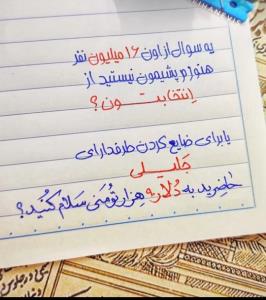 یه سوال از اون ۱۶ میلیون نفر
هنوزم پشیمون نیستید از
انتخابتون؟
یا برای ضایع کردن طرفدارای
جلیلی
حاضرید به دلار ۹۰ هزار تومنی سلام کنید؟